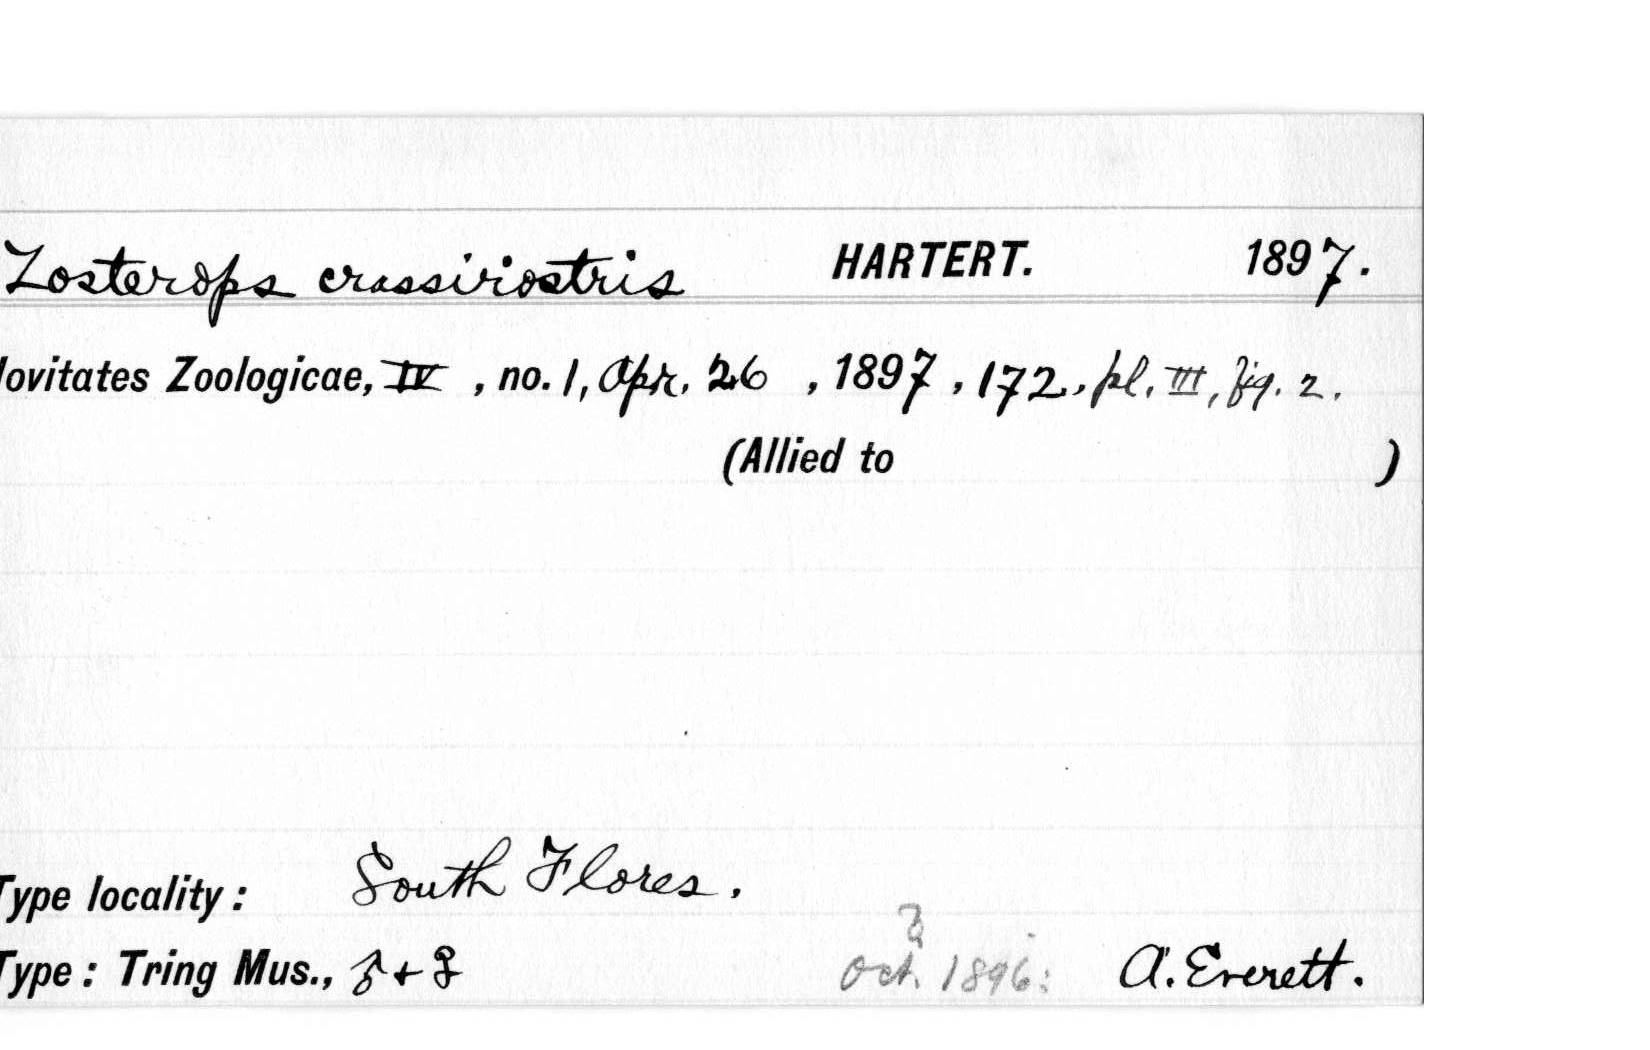 Zosterops crassirostris HARTERT. 1897.
ovitates Zoologicae, IV , no. 1, Apr. 26 , 1897 , 172, pl. III, fig. 2.
(Allied to )
Type locality : South Flores.
?
Type : Tring Mus., ♂ + ♀ Oct. 1896: A. Everett.